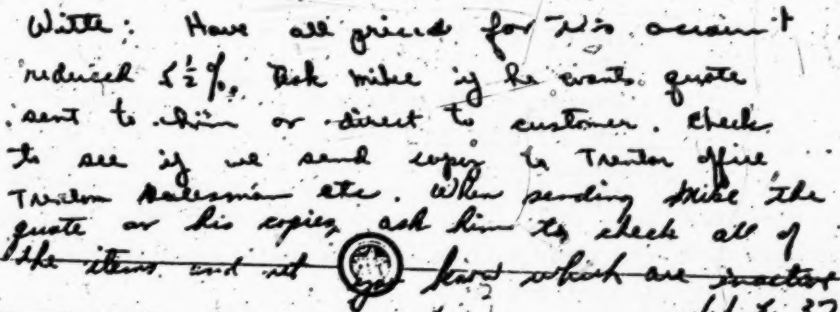 Witte: Have all prices for this account
reduced 5½%. Ask Mike if he wants quote
sent to him or direct to customer. Check
to see if we send copies to Trenton office
Trenton Salesman etc. When sending Mike the
quote or his copies, ask him to check all of
the items and let you know which are inactive